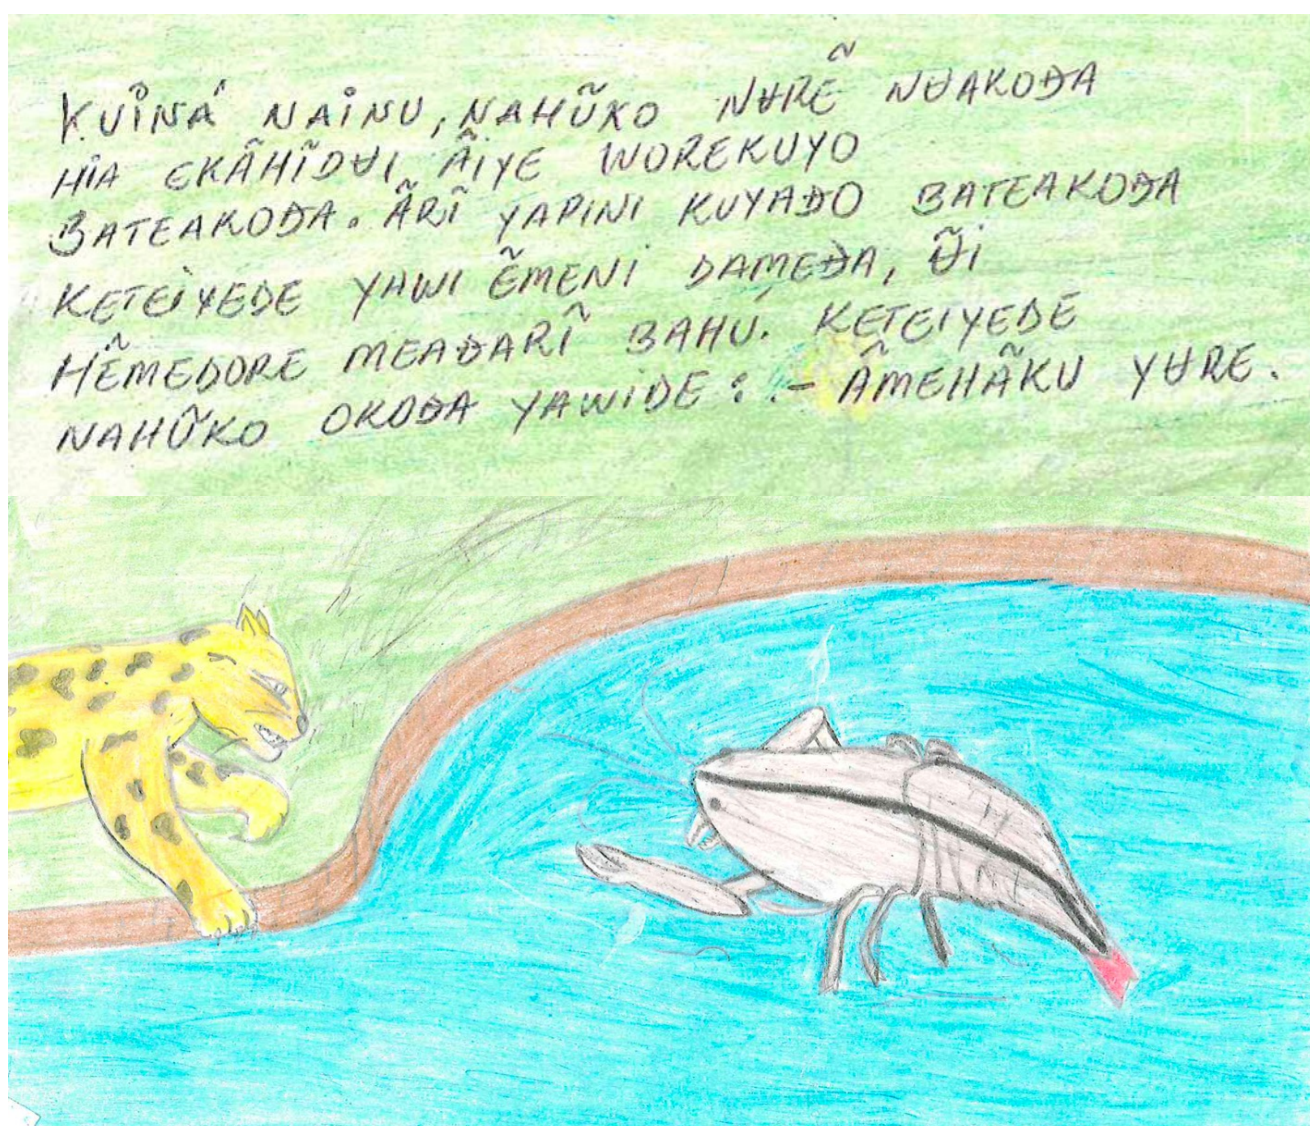 KUINÁ NAINU, NAHŨKO NɄRẼ NɄAKOĐA
HIA EKÃHĨDɄI ÃIYE WOREKUYO
BATEAKOĐA. ÃRĨ YAPINI KUYADO BATEAKOĐA
KETEIYEDE YAWI ẼMENI DAMEĐA, Ɵ̃I
HẼMEDORE MEAĐARĨ BAHÚ. KETEIYEDE
NAHŨKO OKOĐA YAWIDE: - ÃMEHÃKU YɄRE.